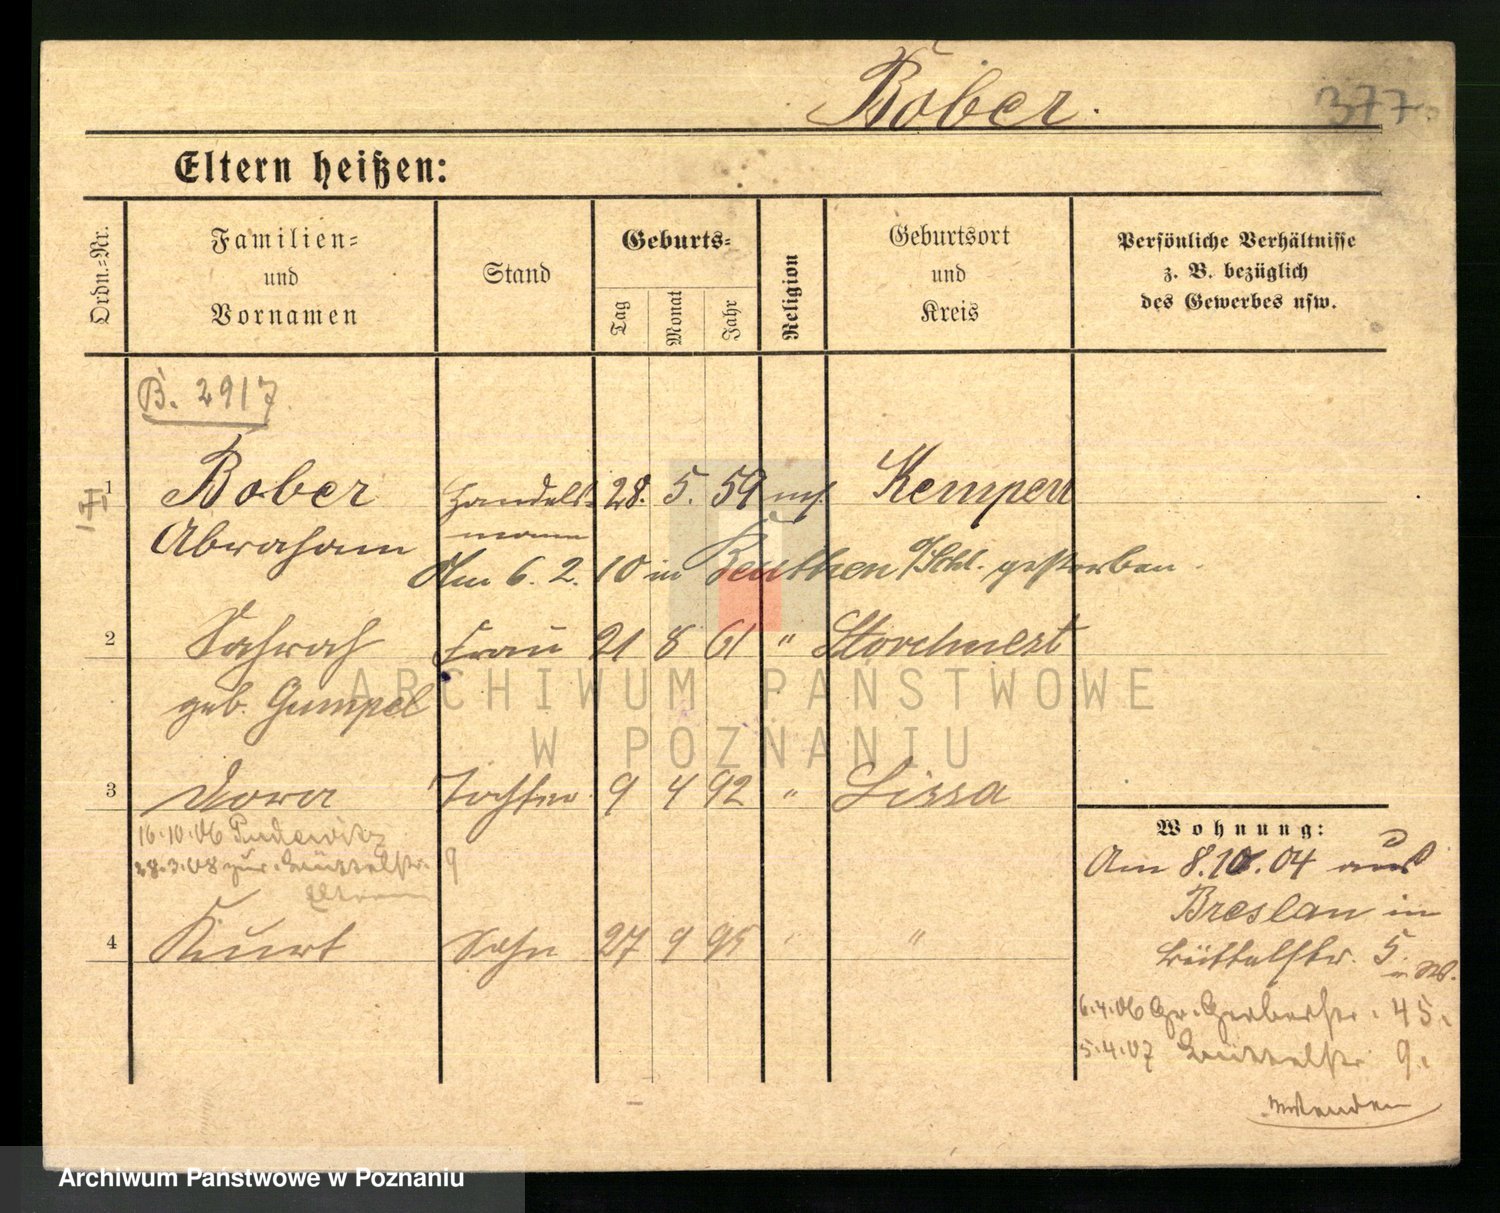 Bober.
377.
Eltern heißen:
Ordn.=Nr.
Familien=
und
Vornamen
Stand
Geburts=
Tag
Monat
Jahr
Religion
Geburtsort
und
Kreis
Persönliche Verhältnisse
z. B. bezüglich
des Gewerbes usw.
B. 2917
1 Bober Handels= 28. 5. 59 mos. Kempen
Abraham mann
Am 6. 2. 10 in Beuthen o/Schl. gestorben.
2 Sahrah Frau 21 8 61 " Storchnest
geb. Gumpel
3 Dora Tochter 9 4 92 " Lissa
16.10.06 Pudewitz
28.3.08 zur. Büttelstr. 9
Eltern
4 Kurt Sohn 27 9 95 " "
Wohnung:
Am 8.10.04 aus
Breslau in
Büttelstr. 5.
6.4.06 Gr. Gerberstr. 45.
5.4.07 Büttelstr 9.
ARCHIWUM PAŃSTWOWE
W POZNANIU
Archiwum Państwowe w Poznaniu